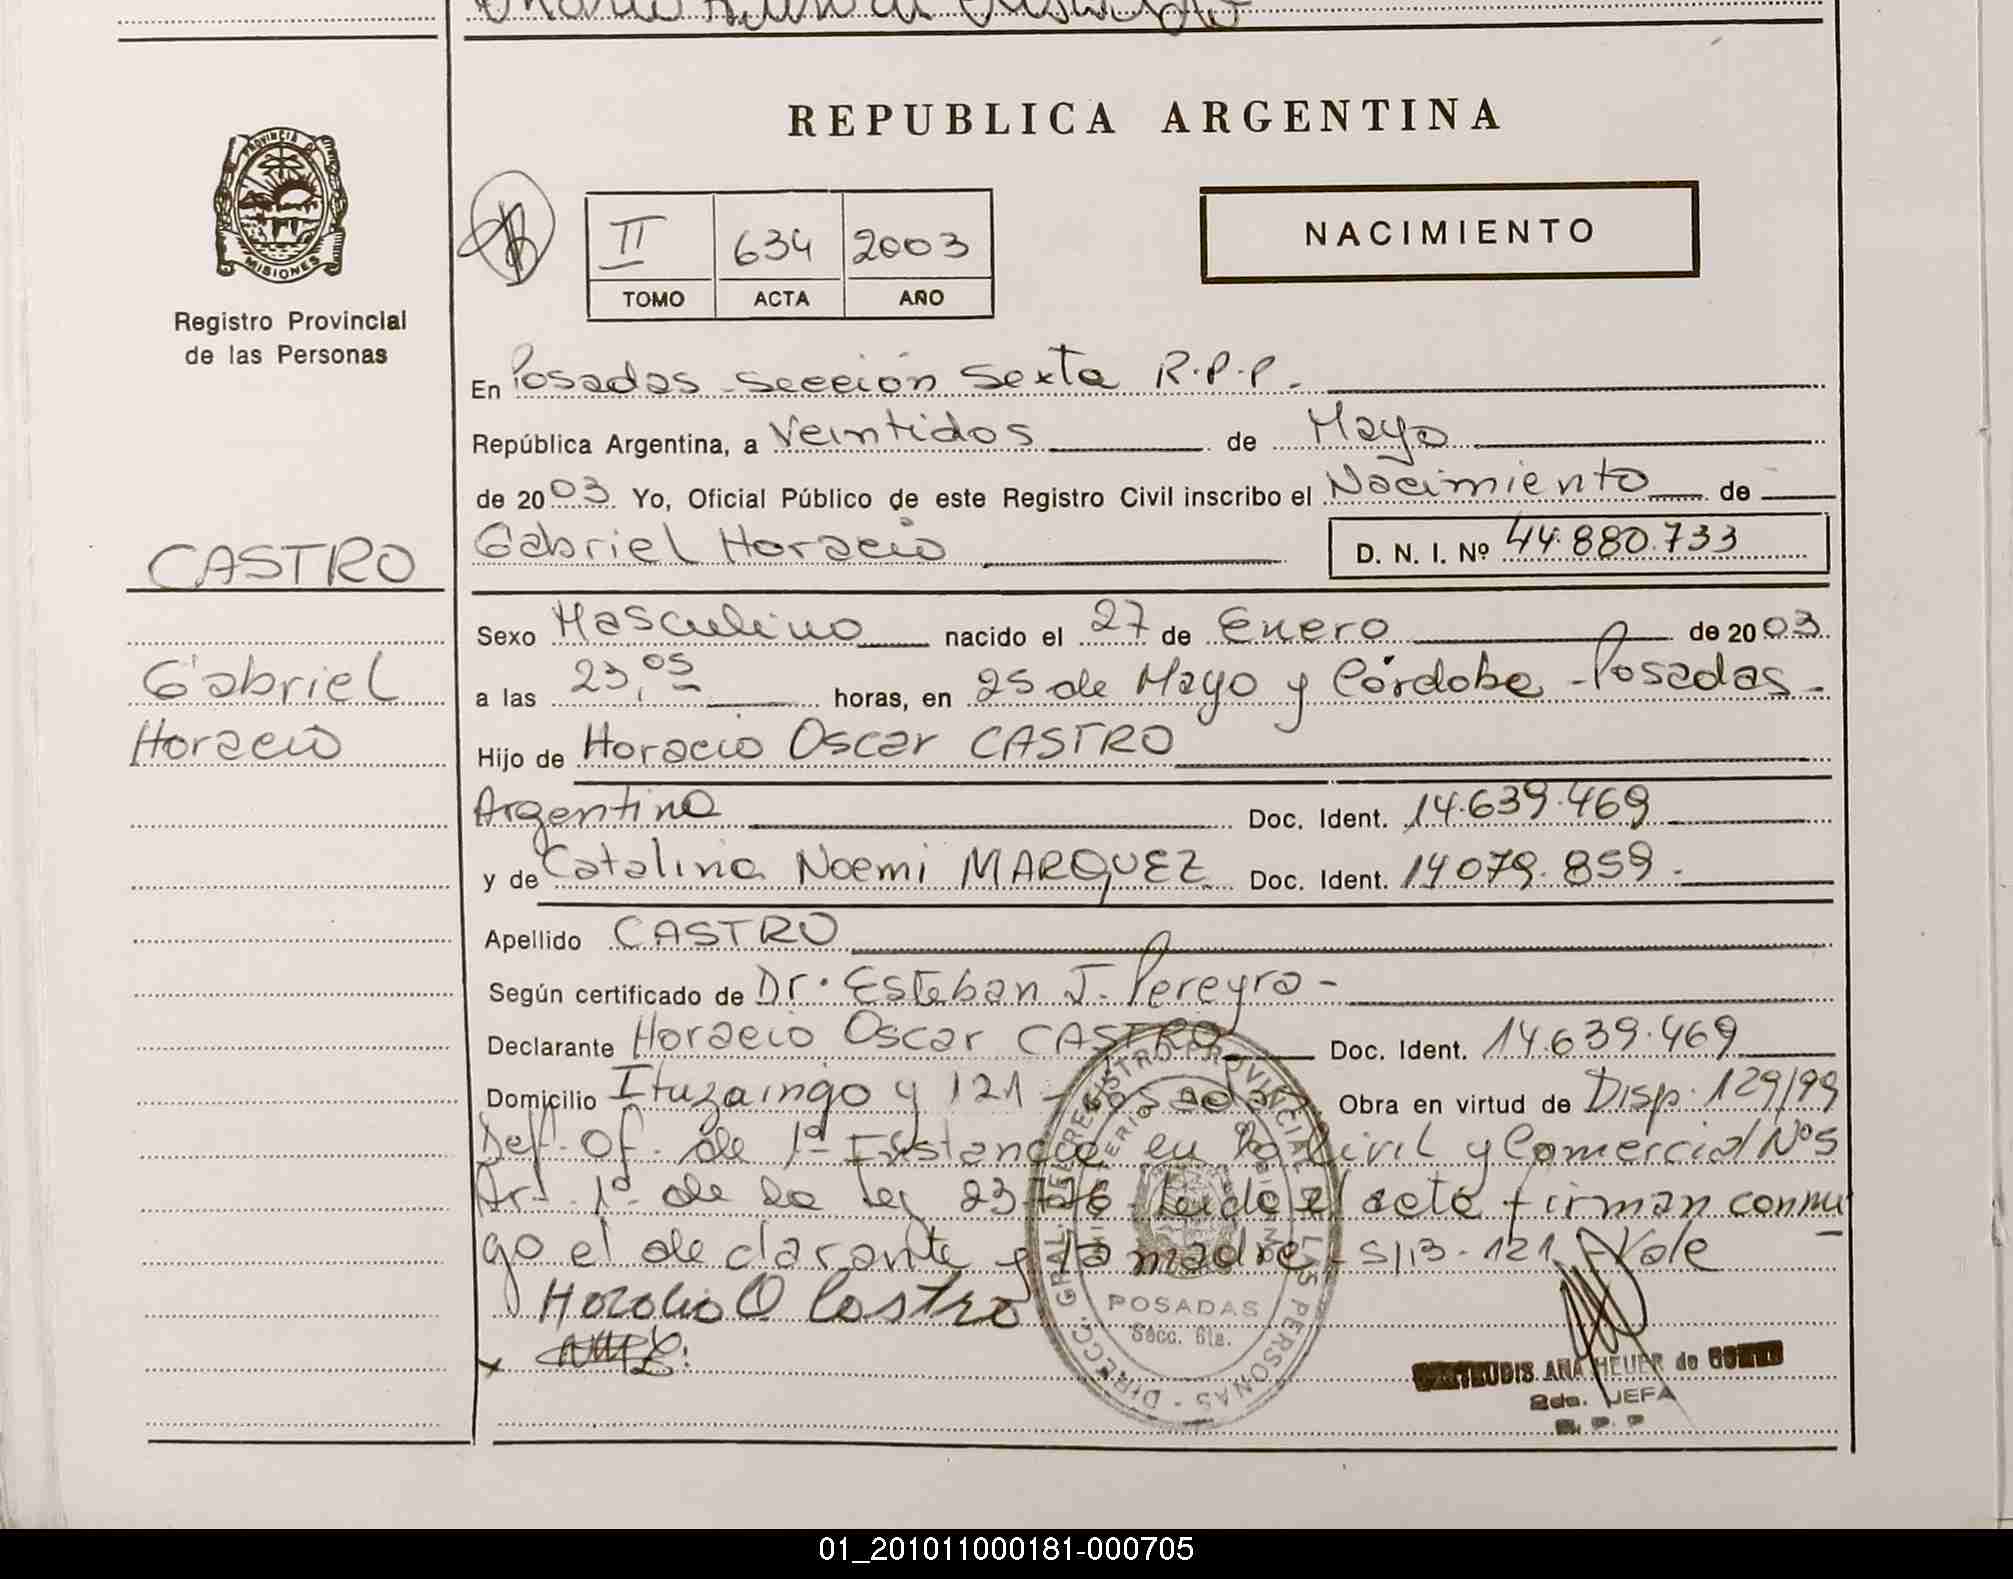 REPUBLICA ARGENTINA
PROVINCIA DE
MISIONES
Registro Provincial
de las Personas
II 634 2003
TOMO ACTA AÑO
NACIMIENTO
En Posadas - sección Sexta R.P.P.
República Argentina, a Veintidos de Mayo
de 2003 Yo, Oficial Público de este Registro Civil inscribo el Nacimiento de
CASTRO
Gabriel Horacio
D. N. I. Nº 44.880.733
Sexo Masculino nacido el 27 de Enero de 2003
Gabriel
Horacio
a las 23,05 horas, en 25 de Mayo y Córdoba - Posadas -
Hijo de Horacio Oscar CASTRO
Argentina Doc. Ident. 14.639.469
y de Catalina Noemi MARQUEZ Doc. Ident. 14079.859.-
Apellido CASTRO
Según certificado de Dr. Esteban J. Pereyra -
Declarante Horacio Oscar CASTRO Doc. Ident. 14.639.469
Domicilio Ituzaingo y 121 - Posadas Obra en virtud de Disp. 129/99
Def. Of. de 1º Instancia en lo Civil y Comercial Nº 5
Art. 1º de la ley 23.776 Leido el acta firman conmi
go el declarante y la madre - S/B - 121 Vale
Horacio O Castro
DIRECC. GRAL. DEL REGISTRO PROVINCIAL DE LAS PERSONAS
POSADAS
Secc. 6ta.
ANA HEUER de
2da. JEFA
R. P. P.
01_201011000181-000705